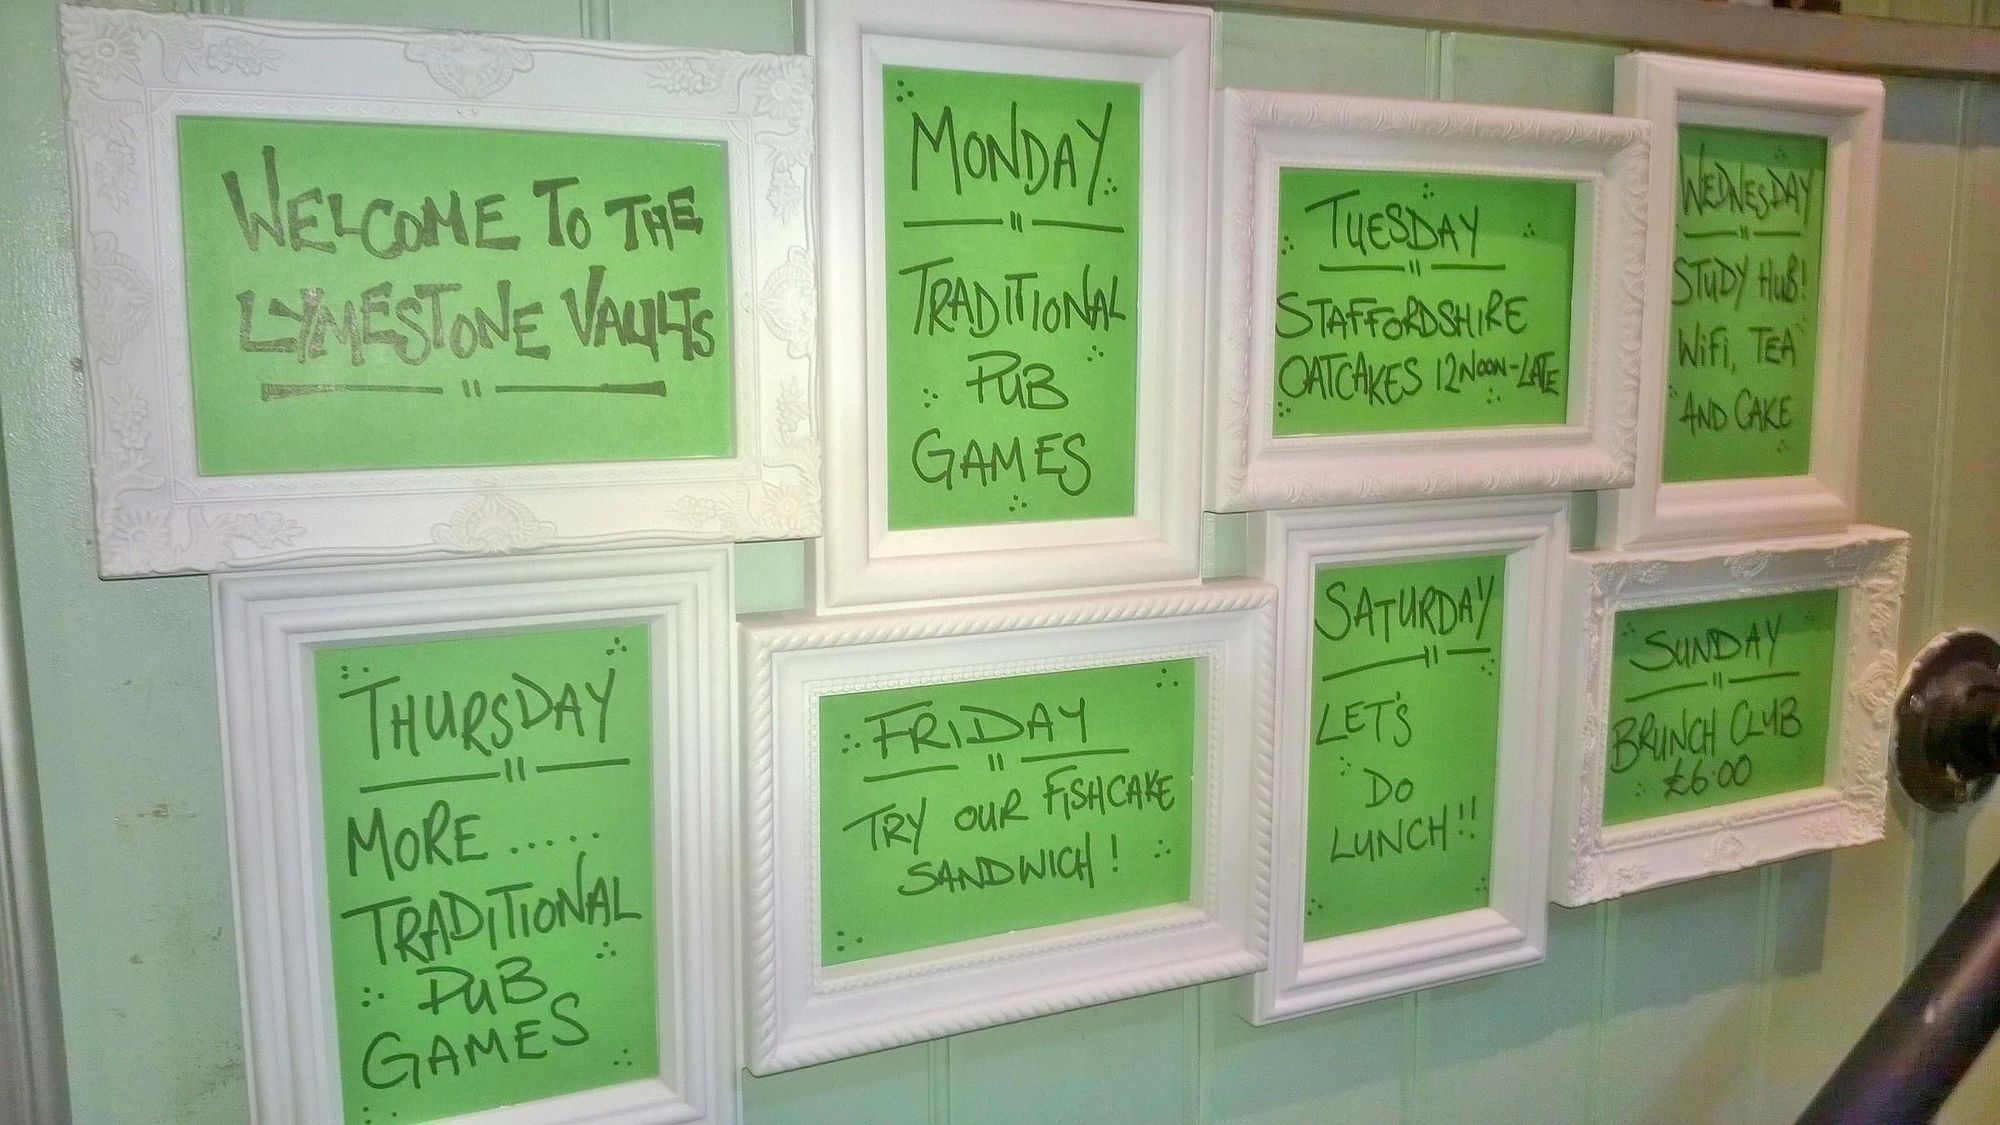 WELCOME TO THE
LYMESTONE VAULTS
MONDAY
TRADITIONAL
PUB
GAMES
TUESDAY
STAFFORDSHIRE
OATCAKES 12NOON-LATE
WEDNESDAY
STUDY HUB!
WIFI, TEA
AND CAKE
THURSDAY
MORE.....
TRADITIONAL
PUB
GAMES
FRIDAY
TRY OUR FISHCAKE
SANDWICH!
SATURDAY
LET'S
DO
LUNCH!!
SUNDAY
BRUNCH CLUB
£6.00